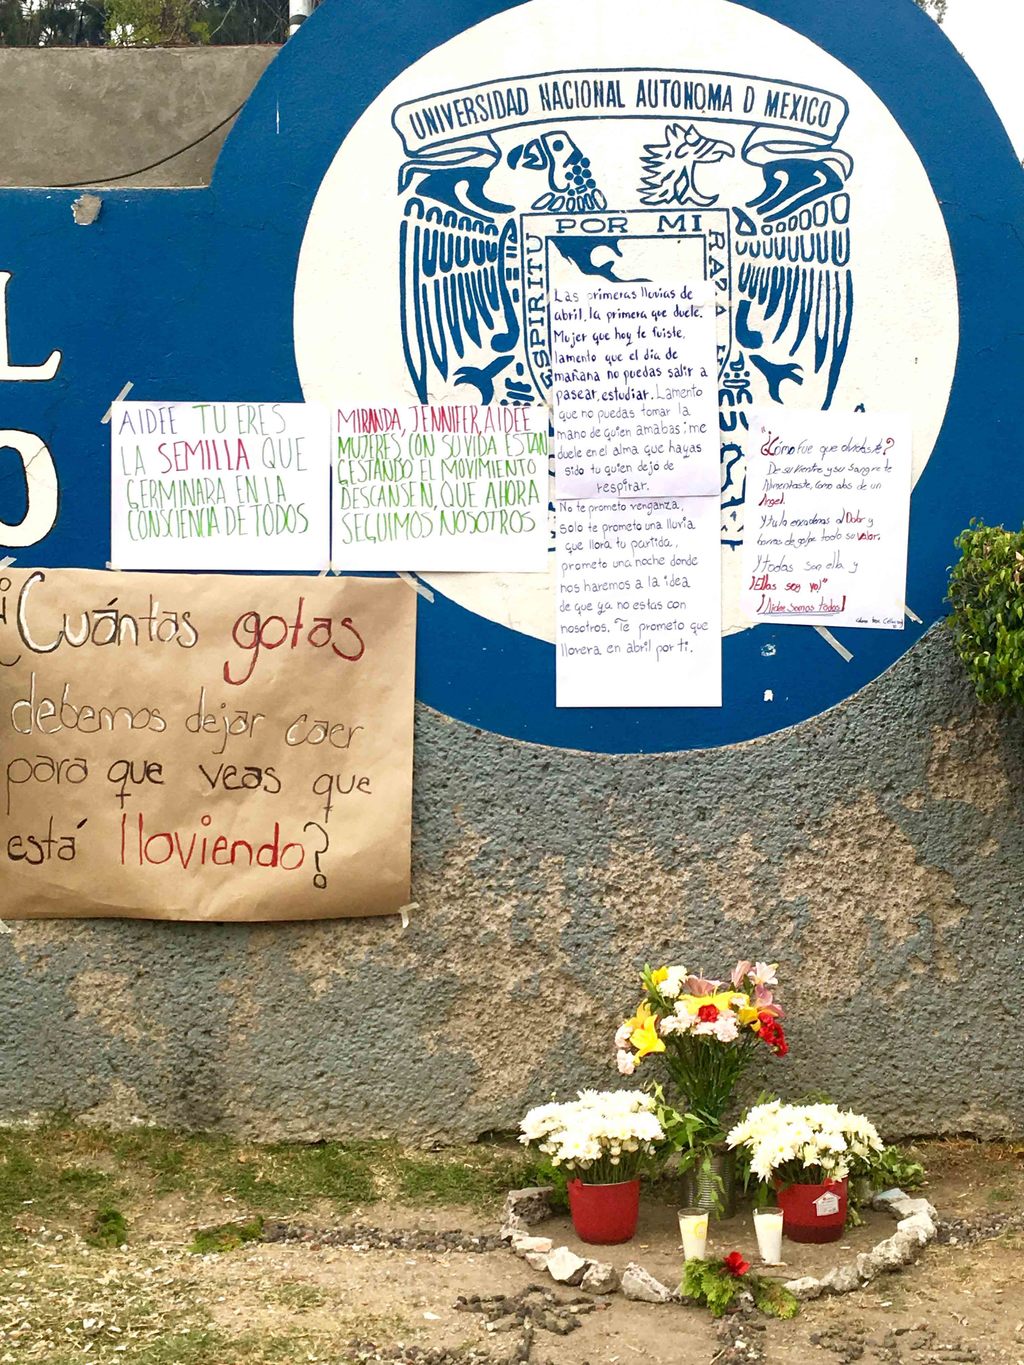 UNIVERSIDAD NACIONAL AUTONOMA D MEXICO
POR MI
RAZA H
ESPIRITU
L
O
AIDEE TU ERES
LA SEMILLA QUE
GERMINARA EN LA
CONSCIENCIA DE TODOS
MIRANDA, JENNIFER, AIDEE
MUJERES CON SU VIDA ESTAN
GESTANDO EL MOVIMIENTO
DESCANSEN, QUE AHORA
SEGUIMOS NOSOTROS
Las primeras lluvias de
abril, la primera que duele.
Mujer que hoy te fuiste,
lamento que el día de
mañana no puedas salir a
pasear, estudiar. Lamento
que no puedas tomar la
mano de quien amabas; me
duele en el alma que hayas
sido tu quien dejo de
respirar.
No te prometo venganza,
solo te prometo una lluvia
que llora tu partida,
prometo una noche donde
nos haremos a la idea
de que ya no estas con
nosotros. Te prometo que
llovera en abril por ti.
"¿Cómo fue que olvidaste?
De su vientre y su sangre te
Alimentaste, como alas de un
Angel.
Y tu la encadenas al Dolor y
borras de golpe todo su valor.
Y todas son ella y
¡Ellas soy yo!"
¡Aidee somos todos!
¿¡Cuántas gotas
debemos dejar caer
para que veas que
está lloviendo?